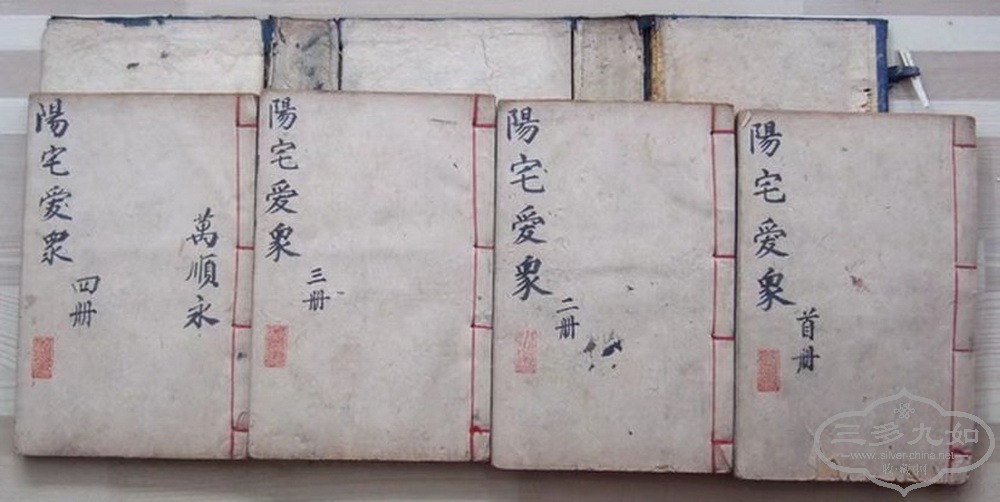 陽宅愛衆
首册
陽宅愛衆
二册
陽宅愛衆
三册
萬順永
陽宅愛衆
四册
三多九如
www.silver-china.net